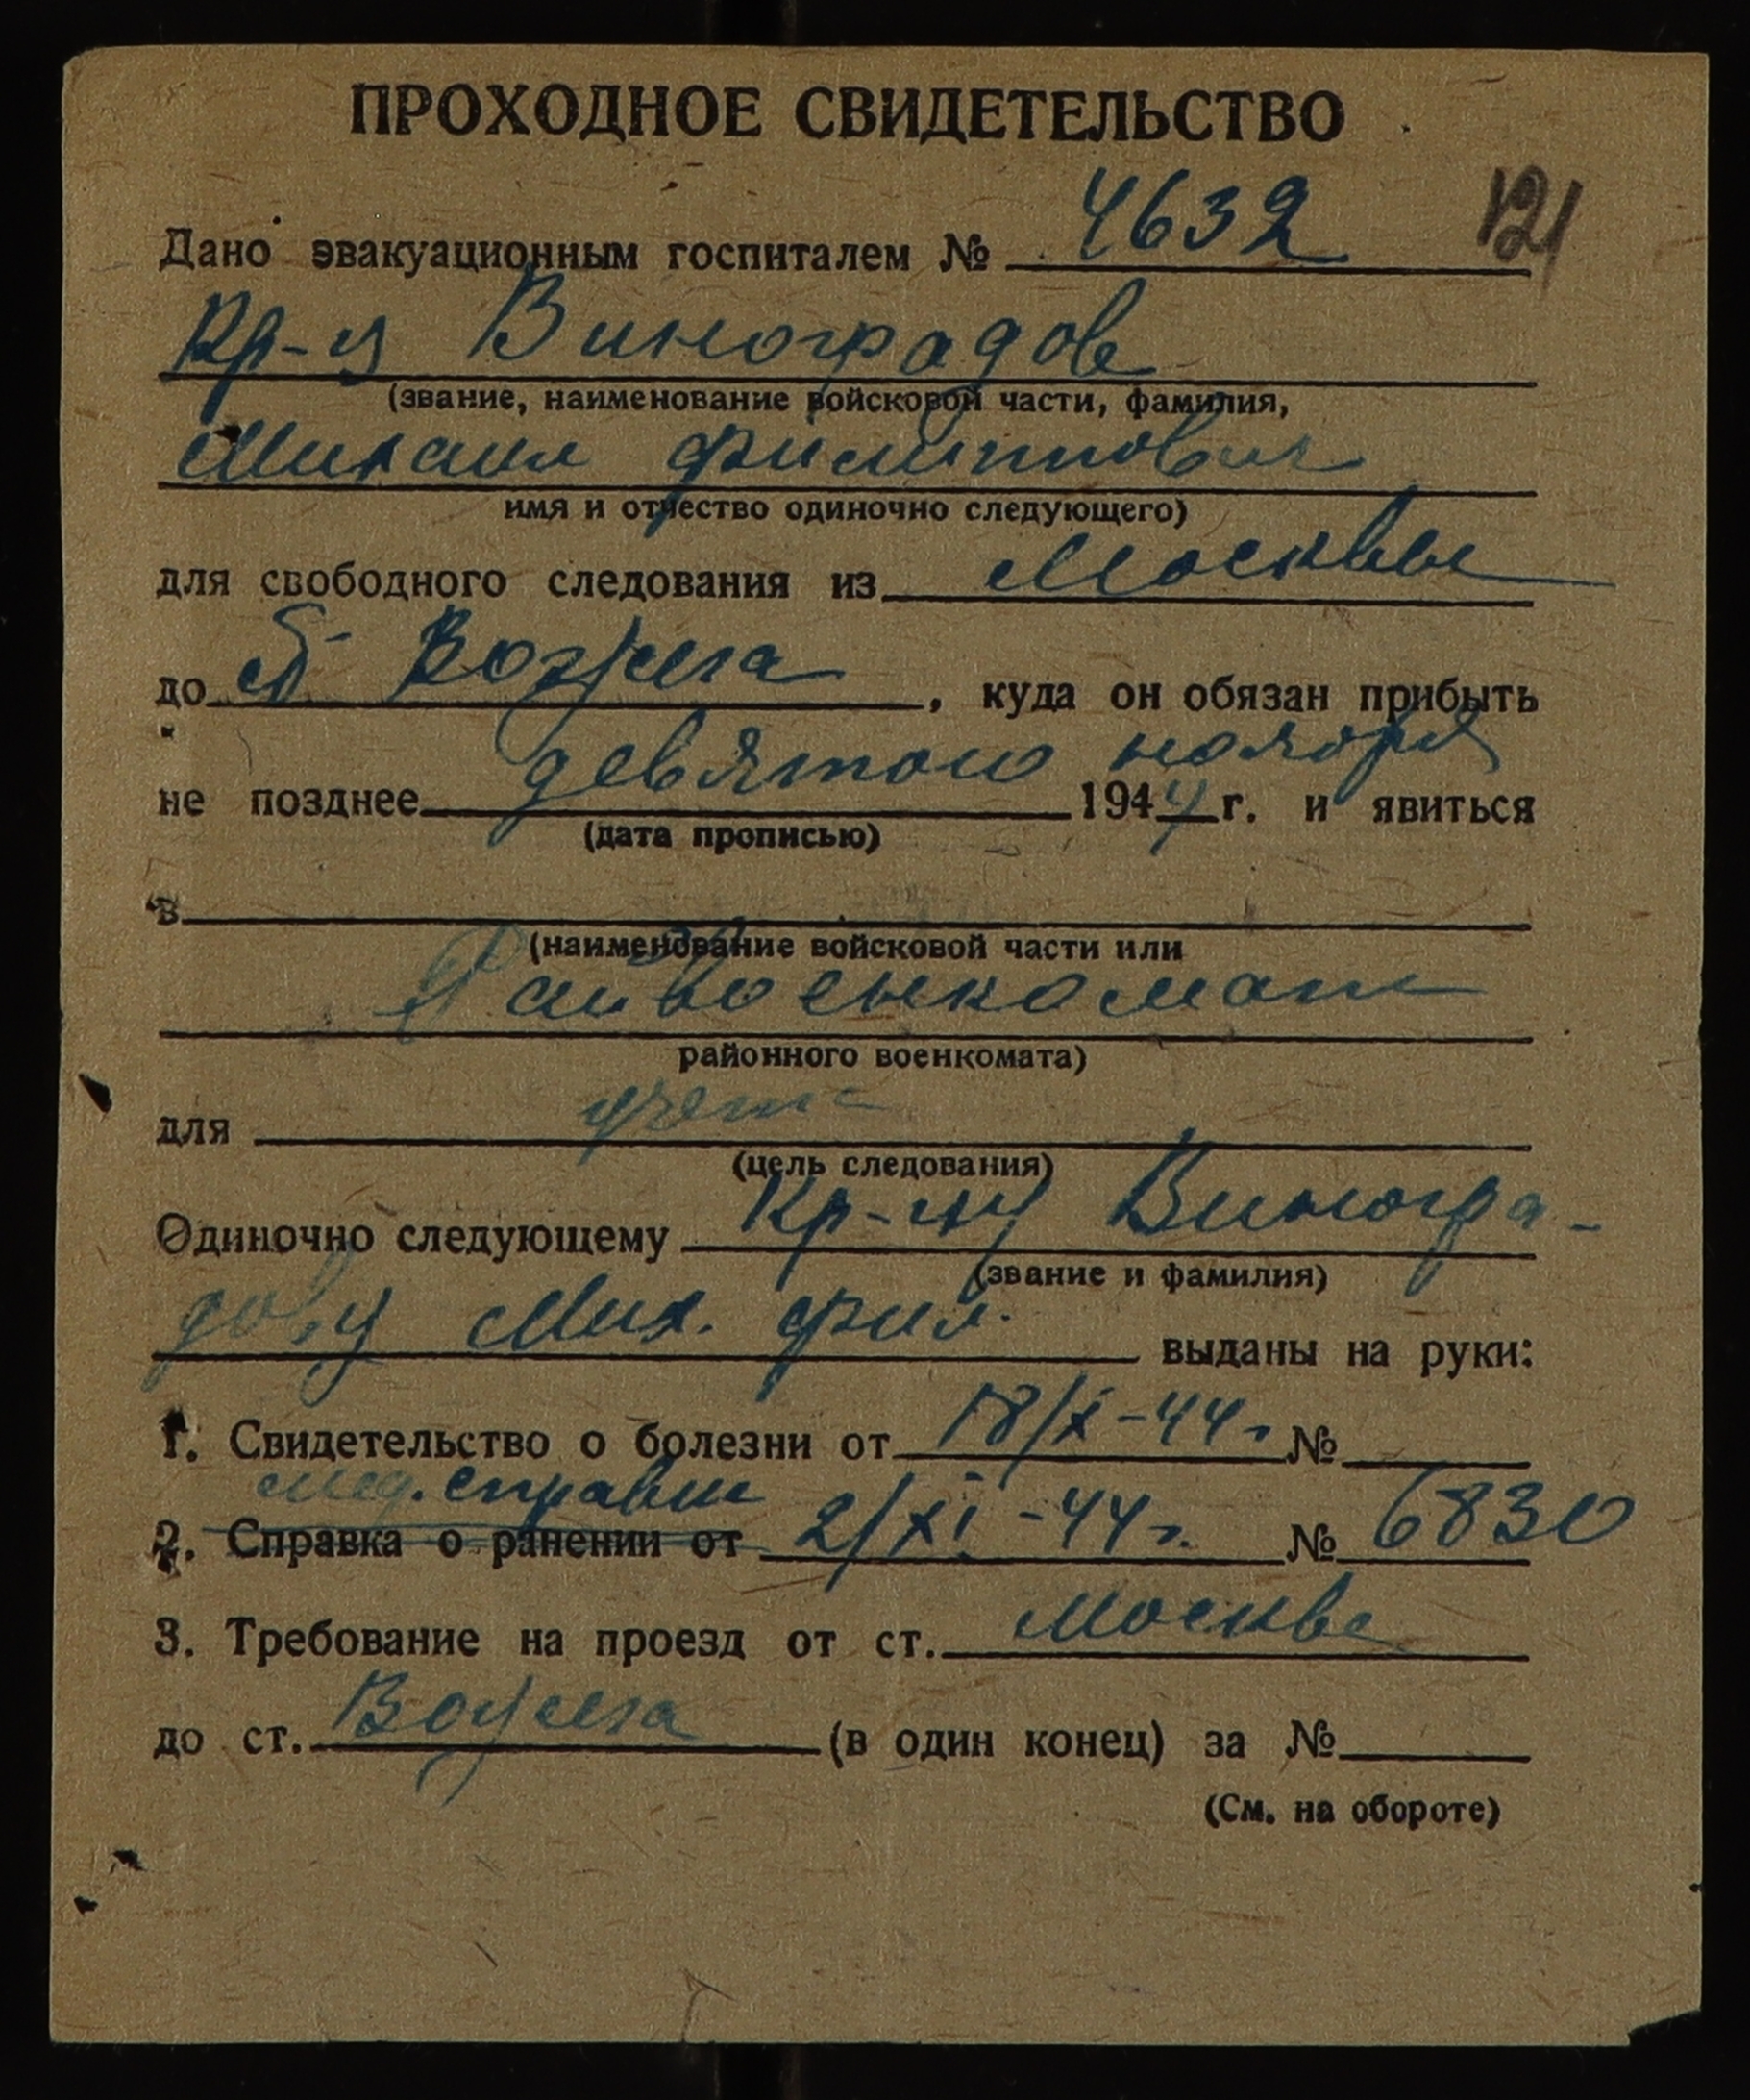 ПРОХОДНОЕ СВИДЕТЕЛЬСТВО
121
Дано эвакуационным госпиталем № 4632
Кр-ц Виноградов
(звание, наименование войсковой части, фамилия,
Михаил Филиппович
имя и отчество одиночно следующего)
для свободного следования из Москвы
до ст. Вожега, куда он обязан прибыть
не позднее девятого ноября 1944 г. и явиться
(дата прописью)
в
(наименование войсковой части или
Райвоенкомат
районного военкомата)
для учета
(цель следования)
Одиночно следующему Кр-цу Виногра-
(звание и фамилия)
дову Мих. Фил. выданы на руки:
1. Свидетельство о болезни от 18/X-44г №
мед. справки
2. Справка о ранении от 2/XI-44г. № 6830
3. Требование на проезд от ст. Москва
до ст. Вожега (в один конец) за №
(См. на обороте)